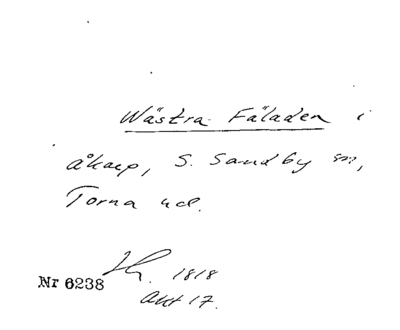 Wästra Fäladen i
åkarp, S. Sandby sn,
Torna hd.
1818
Nr 6238
akt 17.